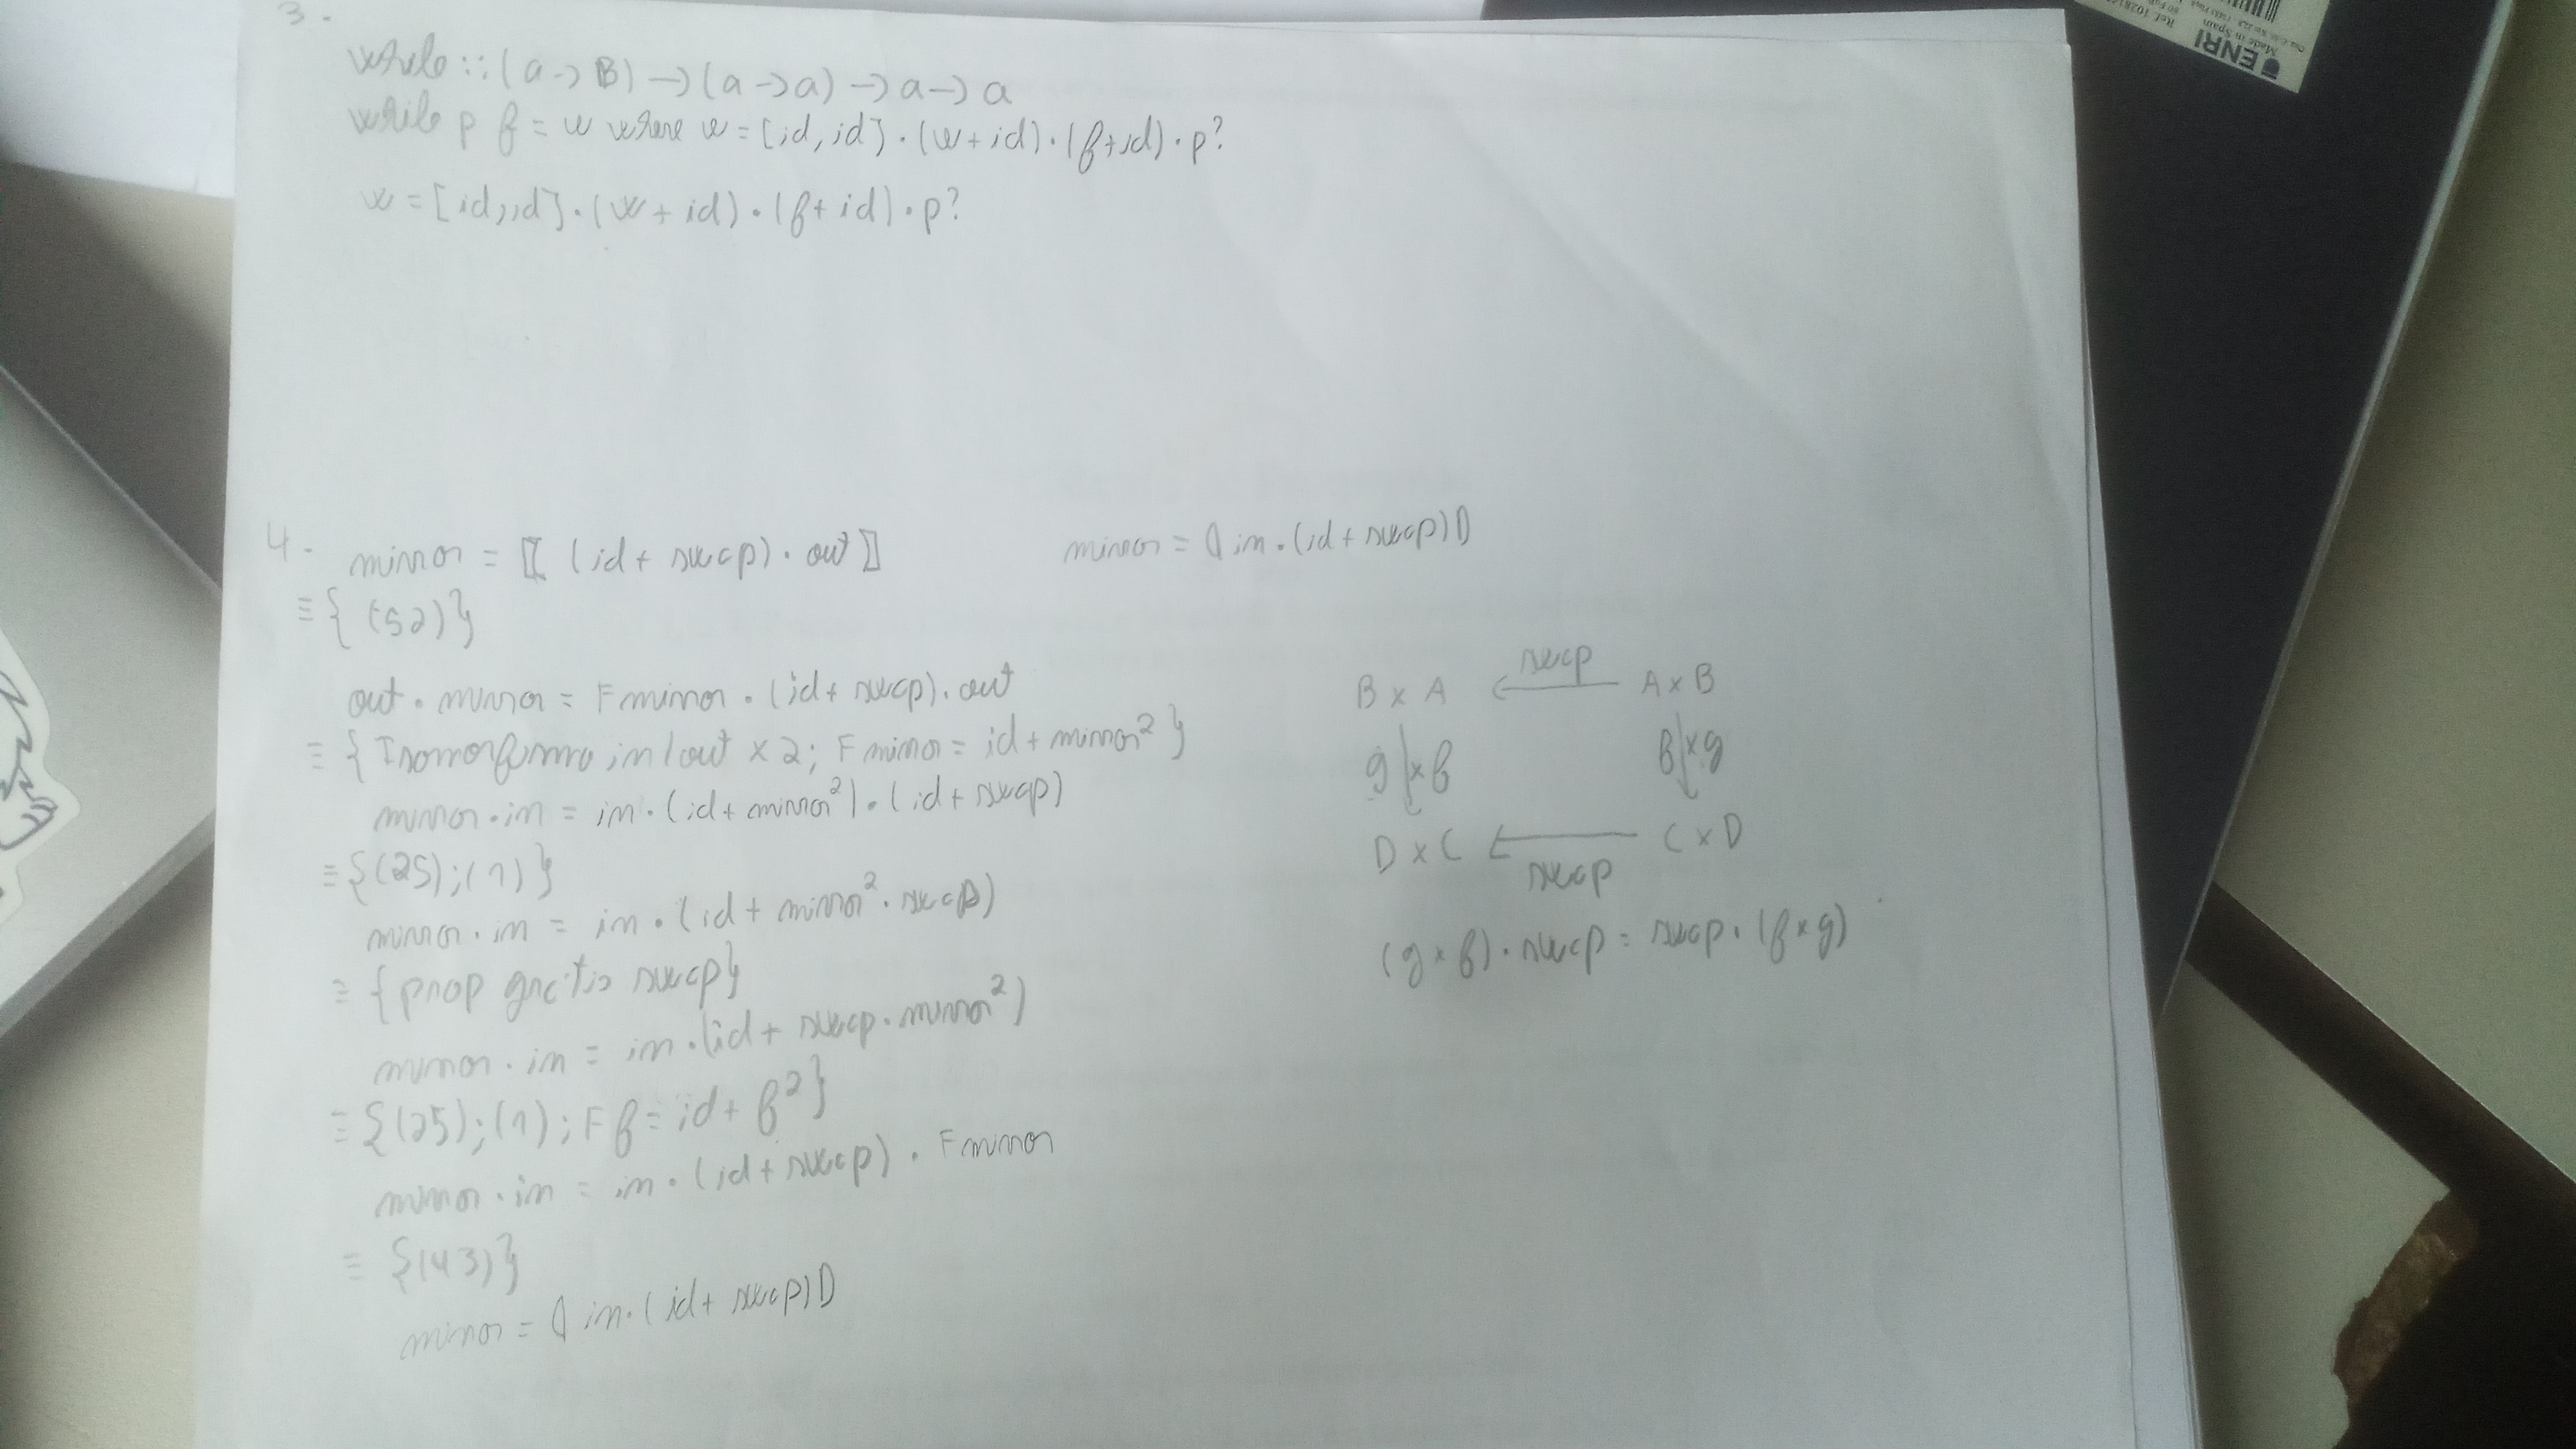 3.
while :: (a -> B) -> (a -> a) -> a -> a
while p f = w where w = [id, id] · (w + id) · (f + id) · p?
w = [id, id] · (w + id) · (f + id) · p?
4. mirror = 〖 (id + swap) · out 〗
mirror = ⦇ in · (id + swap) ⦈
≡ { (52) }
out · mirror = F mirror · (id + swap) · out
≡ { Isomorfismo in/out × 2; F mirror = id + mirror² }
mirror · in = in · (id + mirror²) · (id + swap)
≡ { (25); (1) }
mirror · in = in · (id + mirror² · swap)
≡ { prop grátis swap }
mirror · in = in · (id + swap · mirror²)
≡ { (25); (1); F f = id + f² }
mirror · in = in · (id + swap) · F mirror
≡ { (43) }
mirror = ⦇ in · (id + swap) ⦈
swap
B × A ← A × B
g × f ↓ f × g ↓
D × C ← C × D
swap
(g × f) · swap = swap · (f × g)
ENRI
Made in Spain